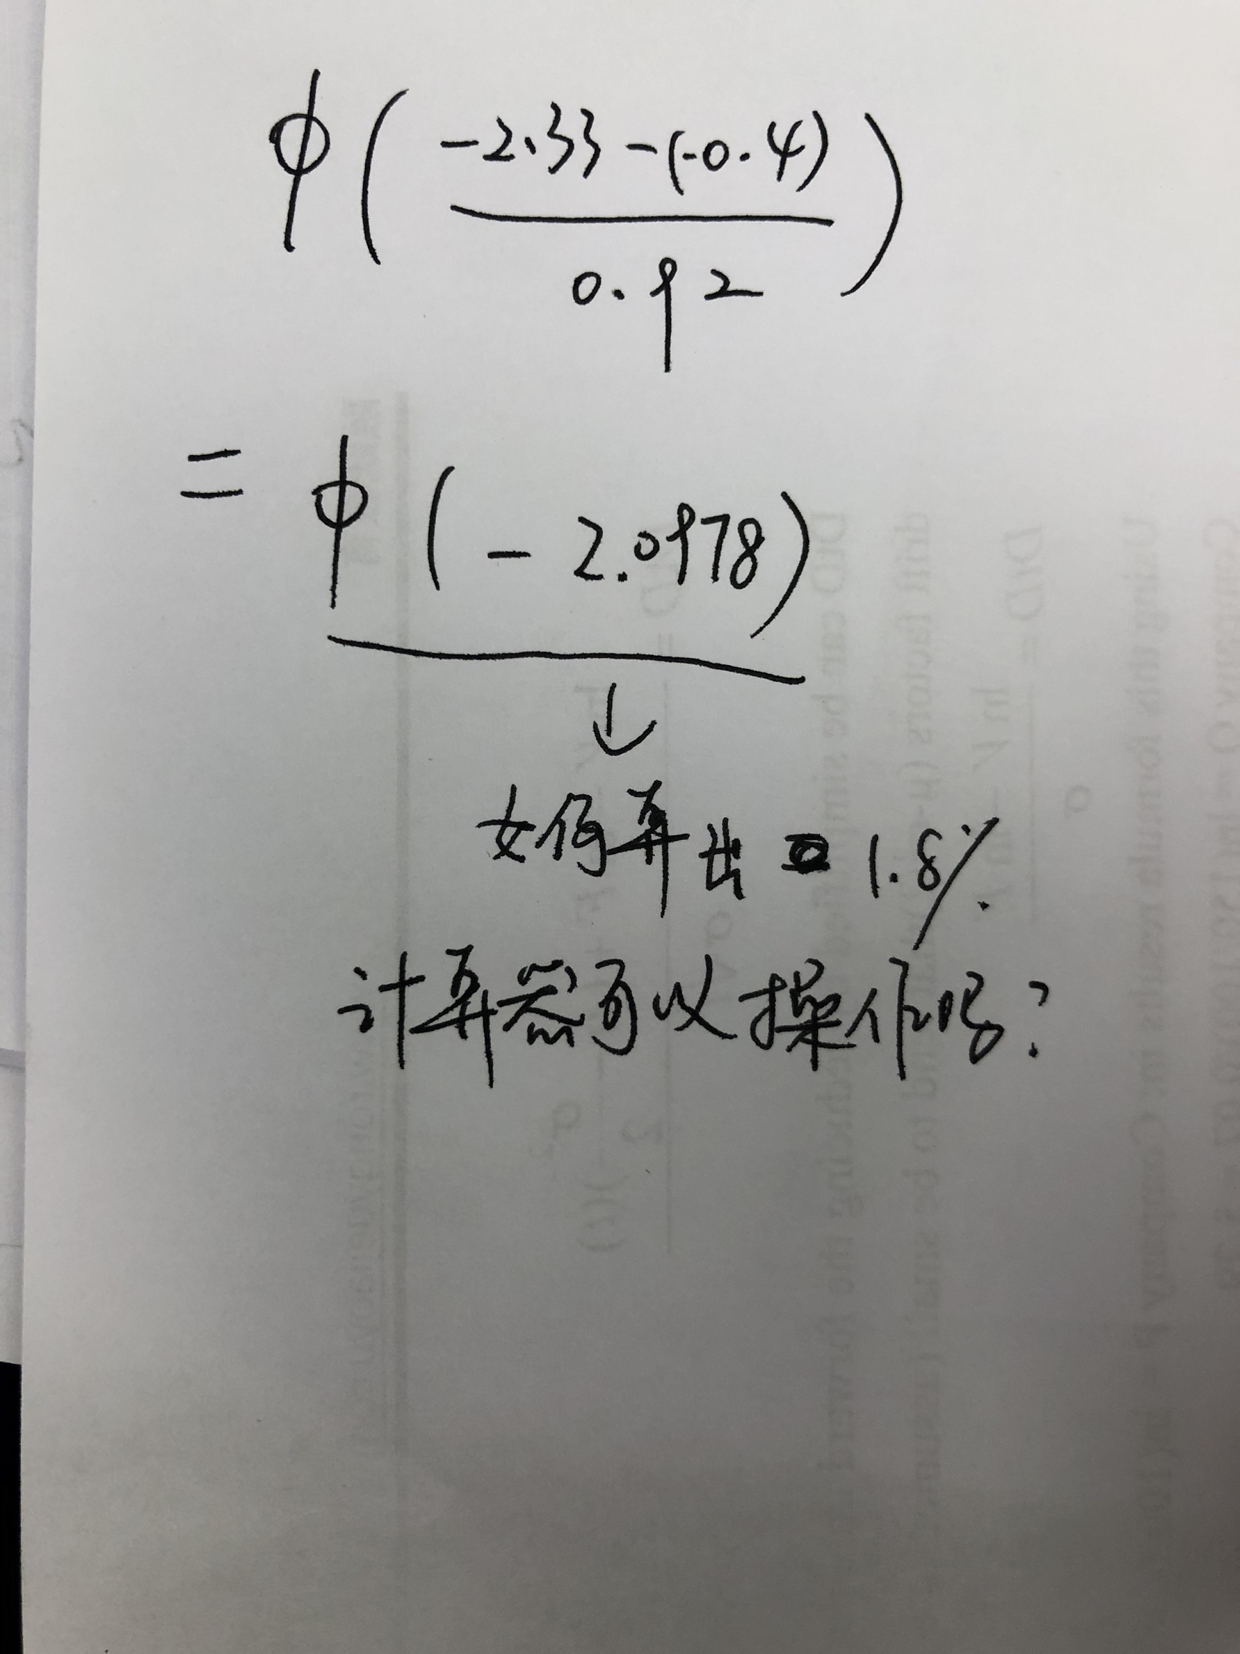 ϕ( -2.33-(-0.4) / 0.92 )
= ϕ(-2.0978)
↓
如何算出 1.8%
计算器可以操作吗?